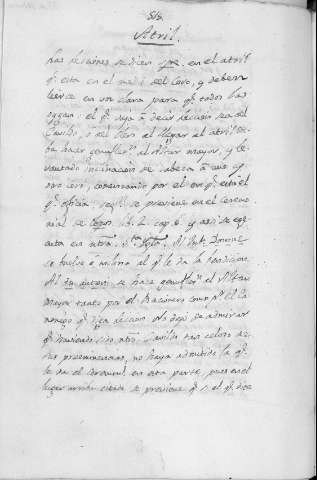 518.
Atril.
Las lecciones se dicen spre. en el atril
q.e esta en el medio del Coro, y deben
leerse en voz clara para q.e todos las
oygan. el q.e vaya à decir leccion sea del
Cavildo, ò del Coro al llegar al atril de
be hacer genuflex.n al Altar mayor, y le
vantado inclinacion de cabeza à uno y
otro coro, comenzando por el en q.e está el
q.e oficia, segun se previene en el Ceremo
nial de Obpos. lib. 2. cap. 6. y asi se ege
cuta en ntra. S.ta Yglia. Al Jube Domne
se vuelve è inclina al q.e le da la bendicion.
Al tu autem se hace genuflex.n al Altar
mayor tanto por el Racionero como p.r el Ca
nonigo q.e diga leccion. No deja de admirar
q.e haviendo sido ntro. Cavildo tan celoso de
sus preeminencias, no haya admitido la q.e
le da el ceremonial en esta parte, pues en el
lugar arriba citado se previene q.e si el q.e dice